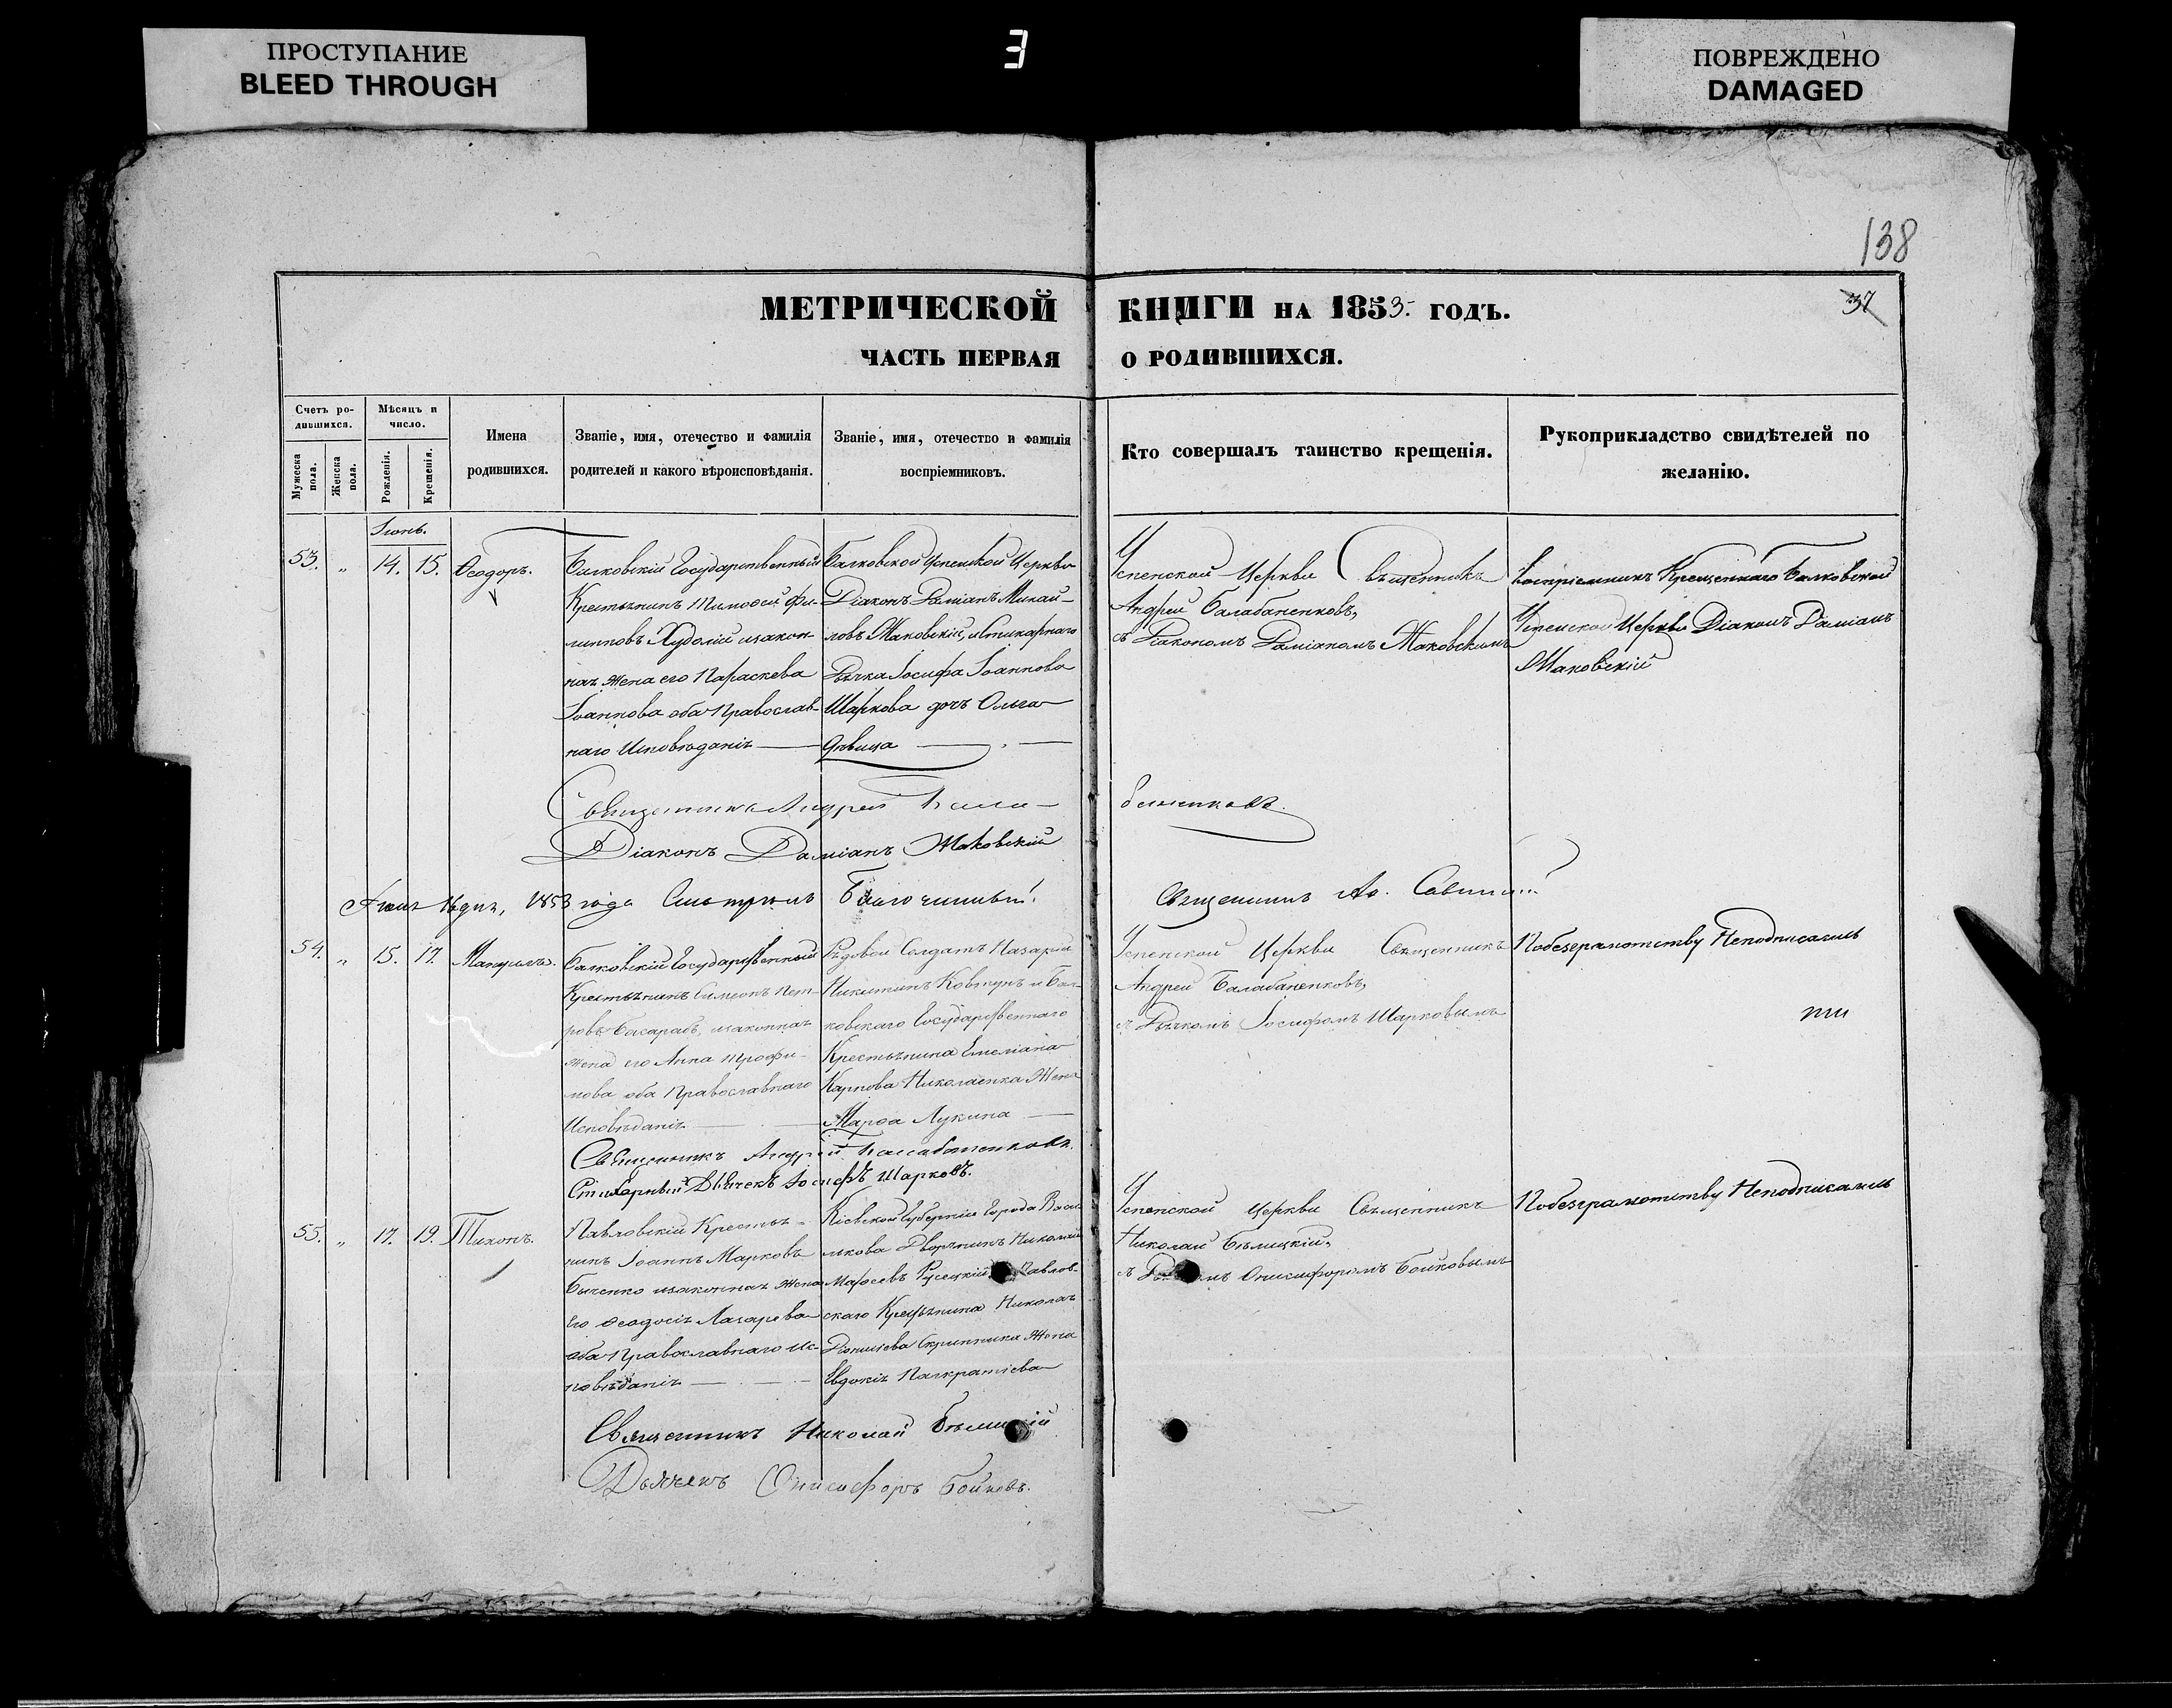 ПРОСТУПАНИЕ
BLEED THROUGH
З
ПОВРЕЖДЕНО
DAMAGED
138
37
МЕТРИЧЕСКОЙ КНИГИ НА 1853 ГОДЪ.
ЧАСТЬ ПЕРВАЯ О РОДИВШИХСЯ.
Счетъ ро-
дившихся.
Мужеска пола.
Женска пола.
Мѣсяцъ и
число.
Рожденія.
Крещенія.
Имена
родившихся.
Званіе, имя, отечество и фамилія
родителей и какого вѣроисповѣданія.
Званіе, имя, отечество и фамилія
воспріемниковъ.
Кто совершалъ таинство крещенія.
Рукоприкладство свидѣтелей по
желанію.
Іюнь.
53. „ 14. 15. Ѳеодоръ.
Балковскій Государственный
Крестьянинъ Тимоѳей Фи-
липповъ Худолій изакон-
ная жена его Параскева
Іоаннова оба Православ-
наго Исповѣданія
Балковской Успенской Церкви
Діаконъ Даміанъ Михай-
ловъ Маковскій, и Стихарнаго
Дьячка Іосифа Іоаннова
Шаркова дочь Ольга
дѣвица
Успенской Церкви Священникъ
Андрей Балабаненковъ,
съ Діакономъ Даміаномъ Маковскимъ
Воспріемникъ Крещеннаго Балковской
Успенской Церкви Діаконъ Даміанъ
Маковскій
Священникъ Андрей Бала-
баненковъ.
Діаконъ Даміанъ Маковскій
1853 года Смотрѣлъ Благочинный
Священникъ
54. „ 15. 17. Мануилъ.
Балковскій Государственный
Крестьянинъ Симеонъ Пет-
ровъ Басарабъ, изаконная
жена его Анна Трофи-
мова оба Православнаго
Исповѣданія
Рядовой Солдатъ Назарій
Никитинъ Ковтунъ и Бал-
ковскаго Государственнаго
Крестьянина Емеліана
Карпова Николаенка Жена
Марѳа Лукина
Успенской Церкви Священникъ
Андрей Балабаненковъ,
съ Дьячкомъ Іосифомъ Шарковымъ
Побезграмотству Неподписались
Священникъ Андрей Балабаненковъ.
Стихарный Дьячекъ Іосифъ Шарковъ.
55. „ 17. 19. Тихонъ.
Павловскій Крестья-
нинъ Іоаннъ Марковъ
Быченко изаконная жена
его Ѳеодосія Лазарева
оба Православнаго Ис-
повѣданія
Кіевской Губерніи Города Васи-
лькова Дворянинъ Николай
Русецкій Павлов-
скаго Крестьянина Николая
Скрипника Жена
Евдокія Панкратіева
Успенской Церкви Священникъ
Николай Бѣлицкій,
съ Онисифоромъ Бойковымъ
Побезграмотству Неподписались
Священникъ Николай Бѣлицкій
Дьячекъ Онисифоръ Бойковъ.